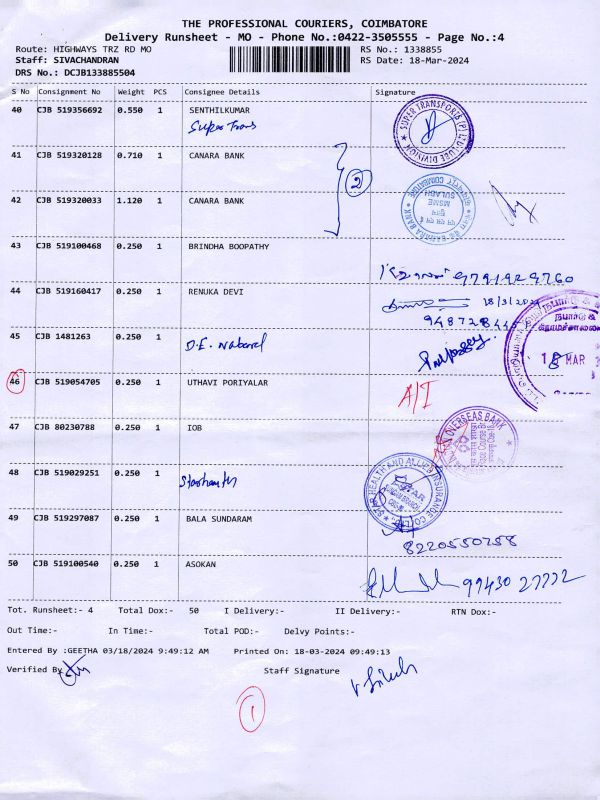 THE PROFESSIONAL COURIERS, COIMBATORE
Delivery Runsheet - MO - Phone No.:0422-3505555 - Page No.:4
Route: HIGHWAYS TRZ RD MO
RS No.: 1338855
Staff: SIVACHANDRAN
RS Date: 18-Mar-2024
DRS No.: DCJB133885504
S No Consignment No Weight PCS Consignee Details Signature
40 CJB 519356692 0.550 1 SENTHILKUMAR
Super Trans
SUPER TRANSPORTS (P) LTD
CUBE DIVISION
41 CJB 519320128 0.710 1 CANARA BANK
2
42 CJB 519320033 1.120 1 CANARA BANK
MSME
SULABH
43 CJB 519100468 0.250 1 BRINDHA BOOPATHY
9791929760
44 CJB 519160417 0.250 1 RENUKA DEVI
18/3/2024
45 CJB 1481263 0.250 1 D.E. Nabard
நபார்டு &
MAR
46 CJB 519054705 0.250 1 UTHAVI PORIYALAR
A/I
47 CJB 80230788 0.250 1 IOB
OVERSEAS BANK
48 CJB 519029251 0.250 1
STAR HEALTH AND ALLIED INSURANCE CO LTD
STAR
49 CJB 519297087 0.250 1 BALA SUNDARAM
8220550258
50 CJB 519100540 0.250 1 ASOKAN
99430 27772
Tot. Runsheet:- 4 Total Dox:- 50 I Delivery:- II Delivery:- RTN Dox:-
Out Time:- In Time:- Total POD:- Delvy Points:-
Entered By :GEETHA 03/18/2024 9:49:12 AM Printed On: 18-03-2024 09:49:13
Verified By
Staff Signature
1